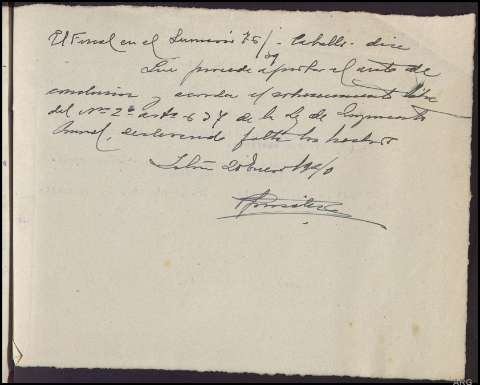 El Fiscal en el Sumario 75/39 - Caballo - dice
Que procede aprobar el auto de
conclusion y acordar el sobreseimiento libre
del Nº 2º arto 637 de la Ley de Enjmiento
Criminal, declarando falta los hechos
20 Enero 1940
ARG